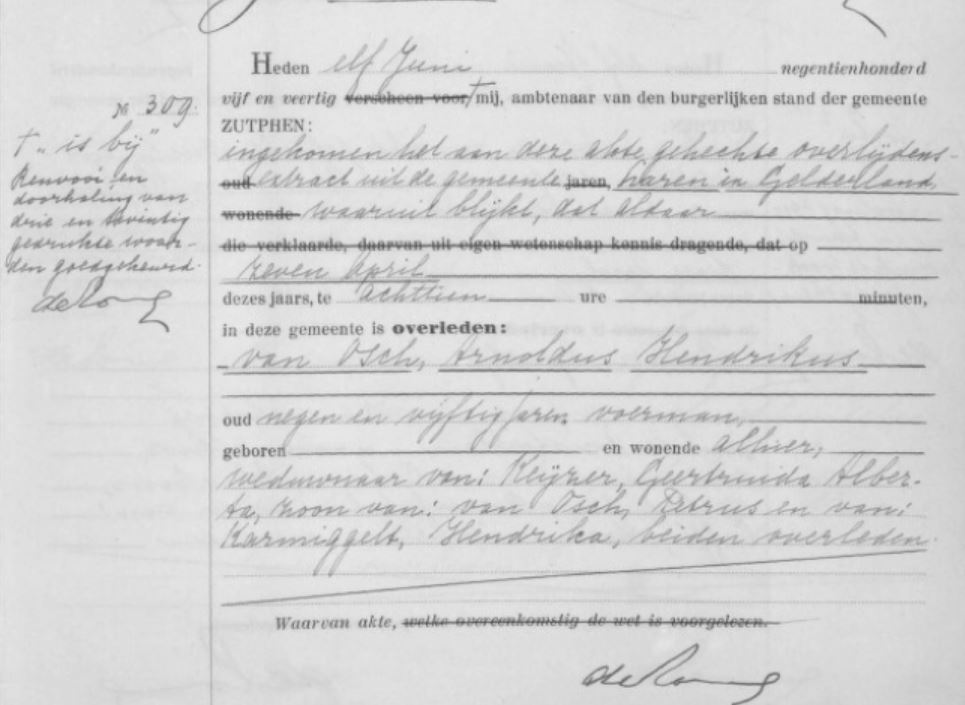 Heden elf Juni negentienhonderd
vijf en veertig verscheen voor † mij, ambtenaar van den burgerlijken stand der gemeente
ZUTPHEN:
ingekomen het aan deze akte gehechte overlijdens-
oud extract uit de gemeente jaren, in Gelderland
wonende waaruit blijkt, dat aldaar
die verklaarde, daarvan uit eigen wetenschap kennis dragende, dat op
zeven April
dezes jaars, te achttien ure minuten,
in deze gemeente is overleden:
van Osch, Arnoldus Hendrikus
oud negen en vijftig jaren voerman,
geboren en wonende alhier,
weduwnaar van: Keijzer, Geertruida Alber-
ta, zoon van: van Osch, Petrus en van:
Karmiggelt, Hendrika, beiden overleden.
Waarvan akte, welke overeenkomstig de wet is voorgelezen.
de Jong
№ 309.
† „is bij"
Renvooi en
doorhaling van
drie en twintig
gedrukte woor-
den goedgekeurd.
de Jong